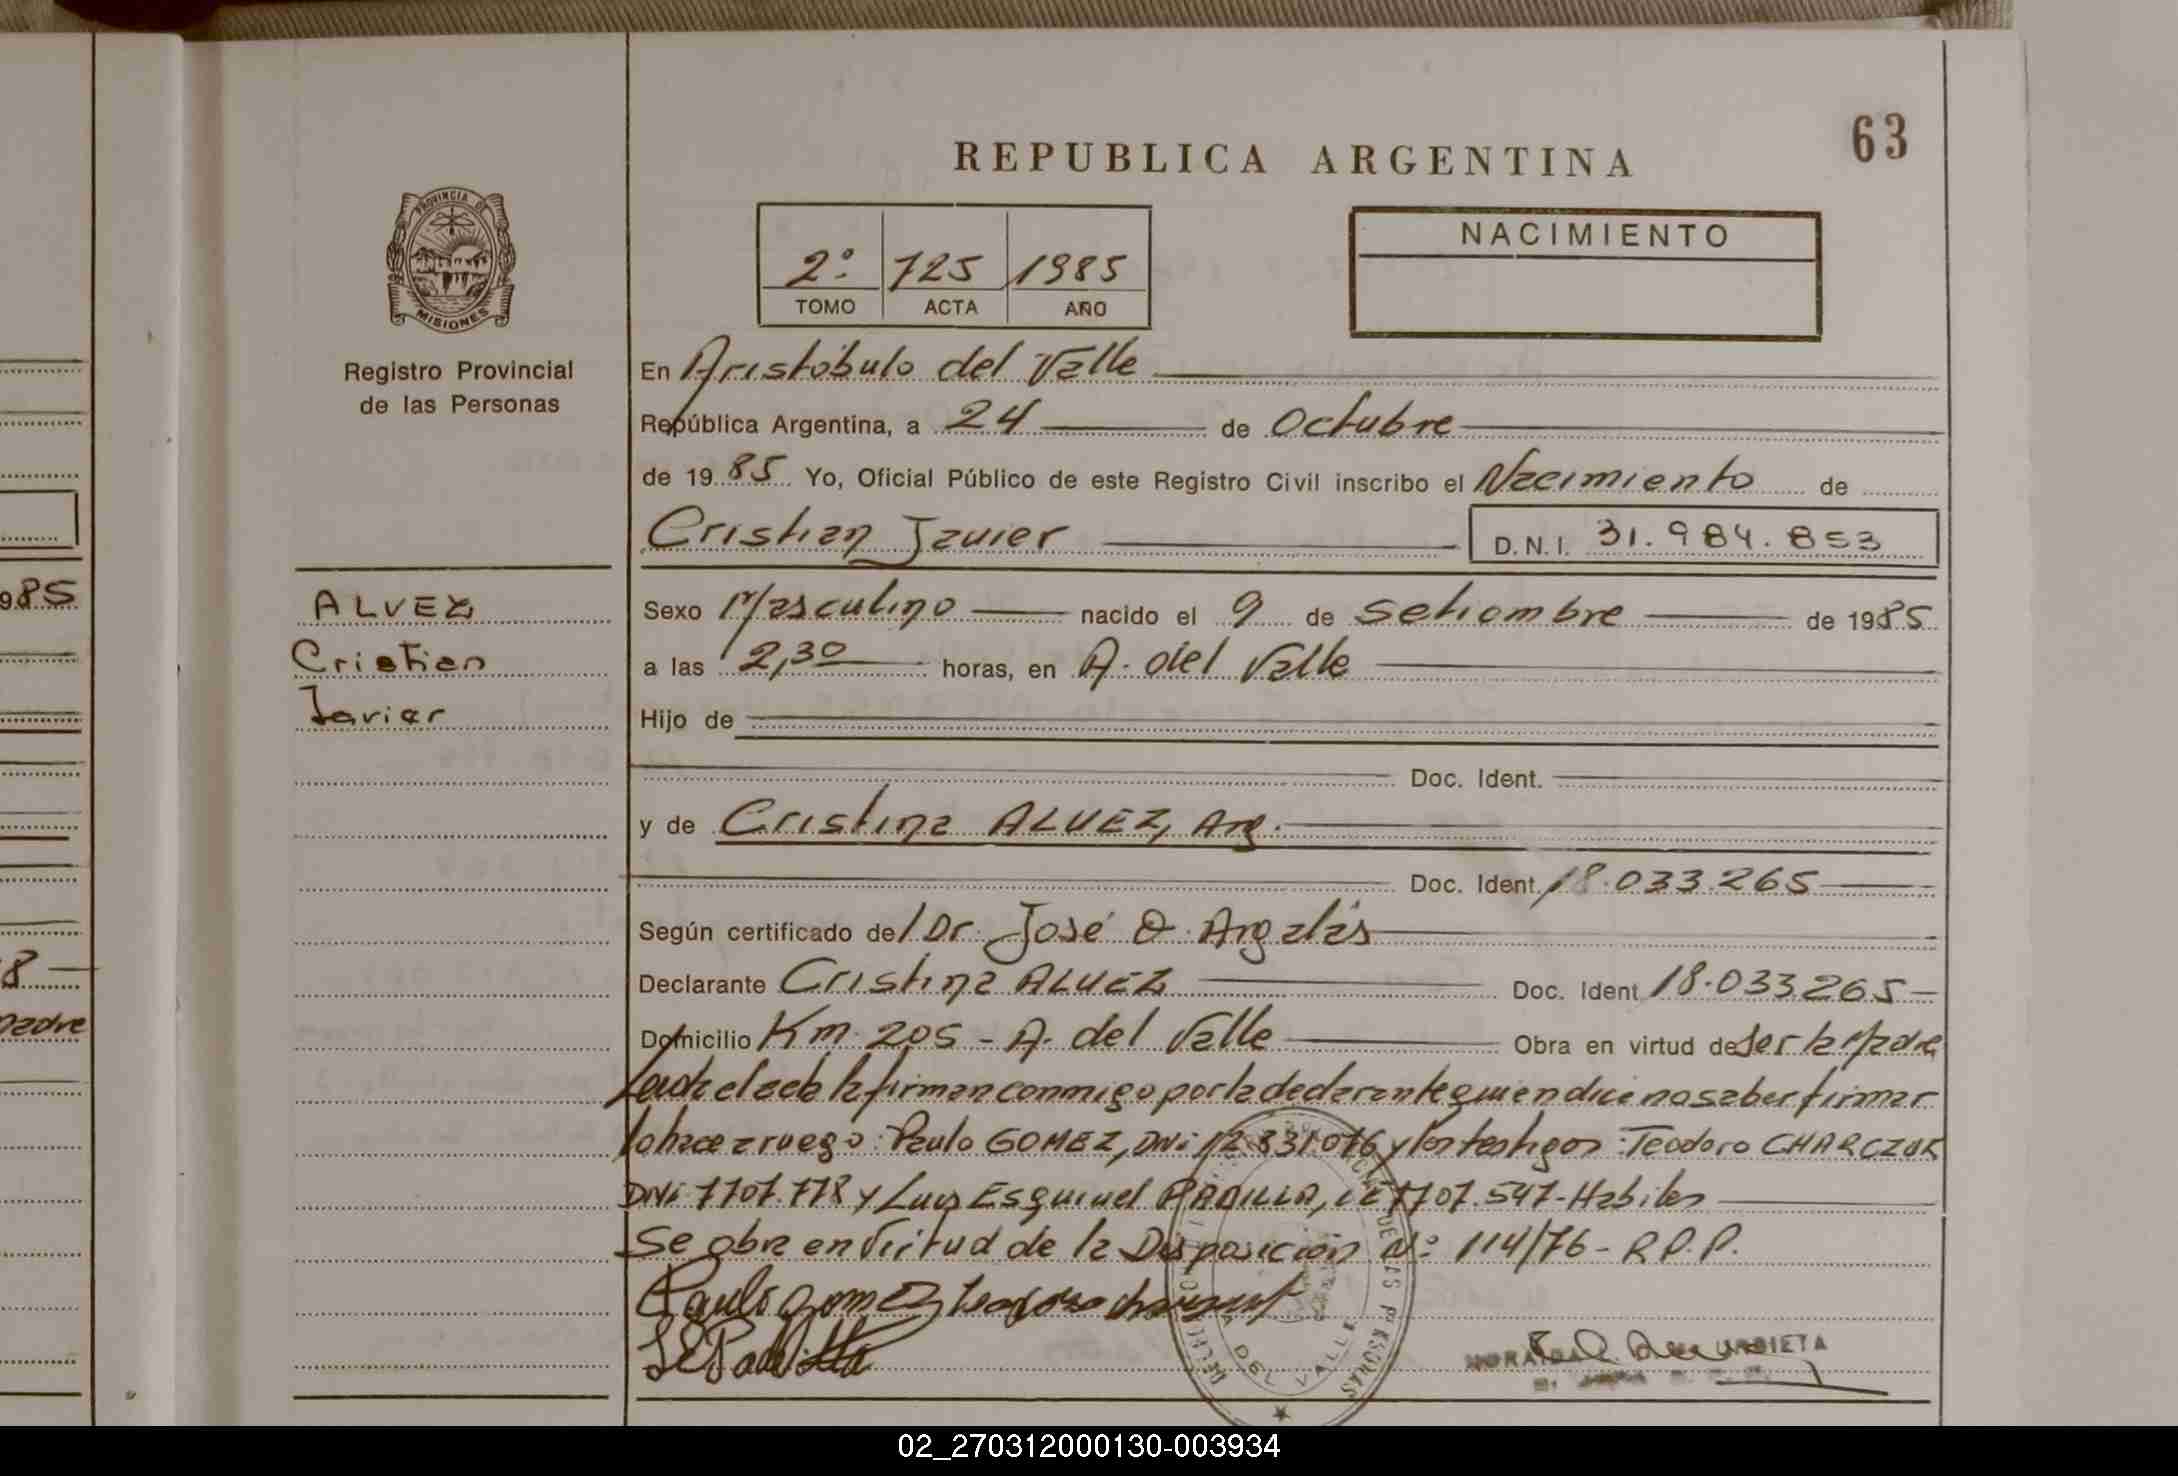 63
REPUBLICA ARGENTINA
PROVINCIA DE
MISIONES
NACIMIENTO
2º 725 1985
TOMO ACTA AÑO
Registro Provincial
de las Personas
En Aristóbulo del Valle
República Argentina, a 24 de Octubre
de 1985 Yo, Oficial Público de este Registro Civil inscribo el Nacimiento de
Cristian Javier D.N.I. 31.984.853
985
ALVEZ
Cristian
Javier
Sexo Masculino nacido el 9 de Setiembre de 1985
a las 2,30 horas, en A. del Valle
Hijo de
Doc. Ident.
y de Cristina ALVEZ, Arg.
Doc. Ident. 18.033.265
Según certificado del Dr. José O. Argalás
Declarante Cristina ALVEZ Doc. Ident 18.033.265
Domicilio Km. 205 - A. del Valle Obra en virtud de ser la Madre
8
Madre
Leída el acta la firman conmigo por la declarante quien dice no saber firmar
lo hace a ruego: Paulo GOMEZ, DNi 12.831.076 y los testigos: Teodoro CHARCZUK
DNi 7707.778 y Luis Esquiuel PADILLA, LE 7707.547- Habiles
Se obra en Virtud de la Disposición Nº 114/76 - R.P.P.
Paulo Gomez
DE LAS PERSONAS
DEL VALLE
02_270312000130-003934